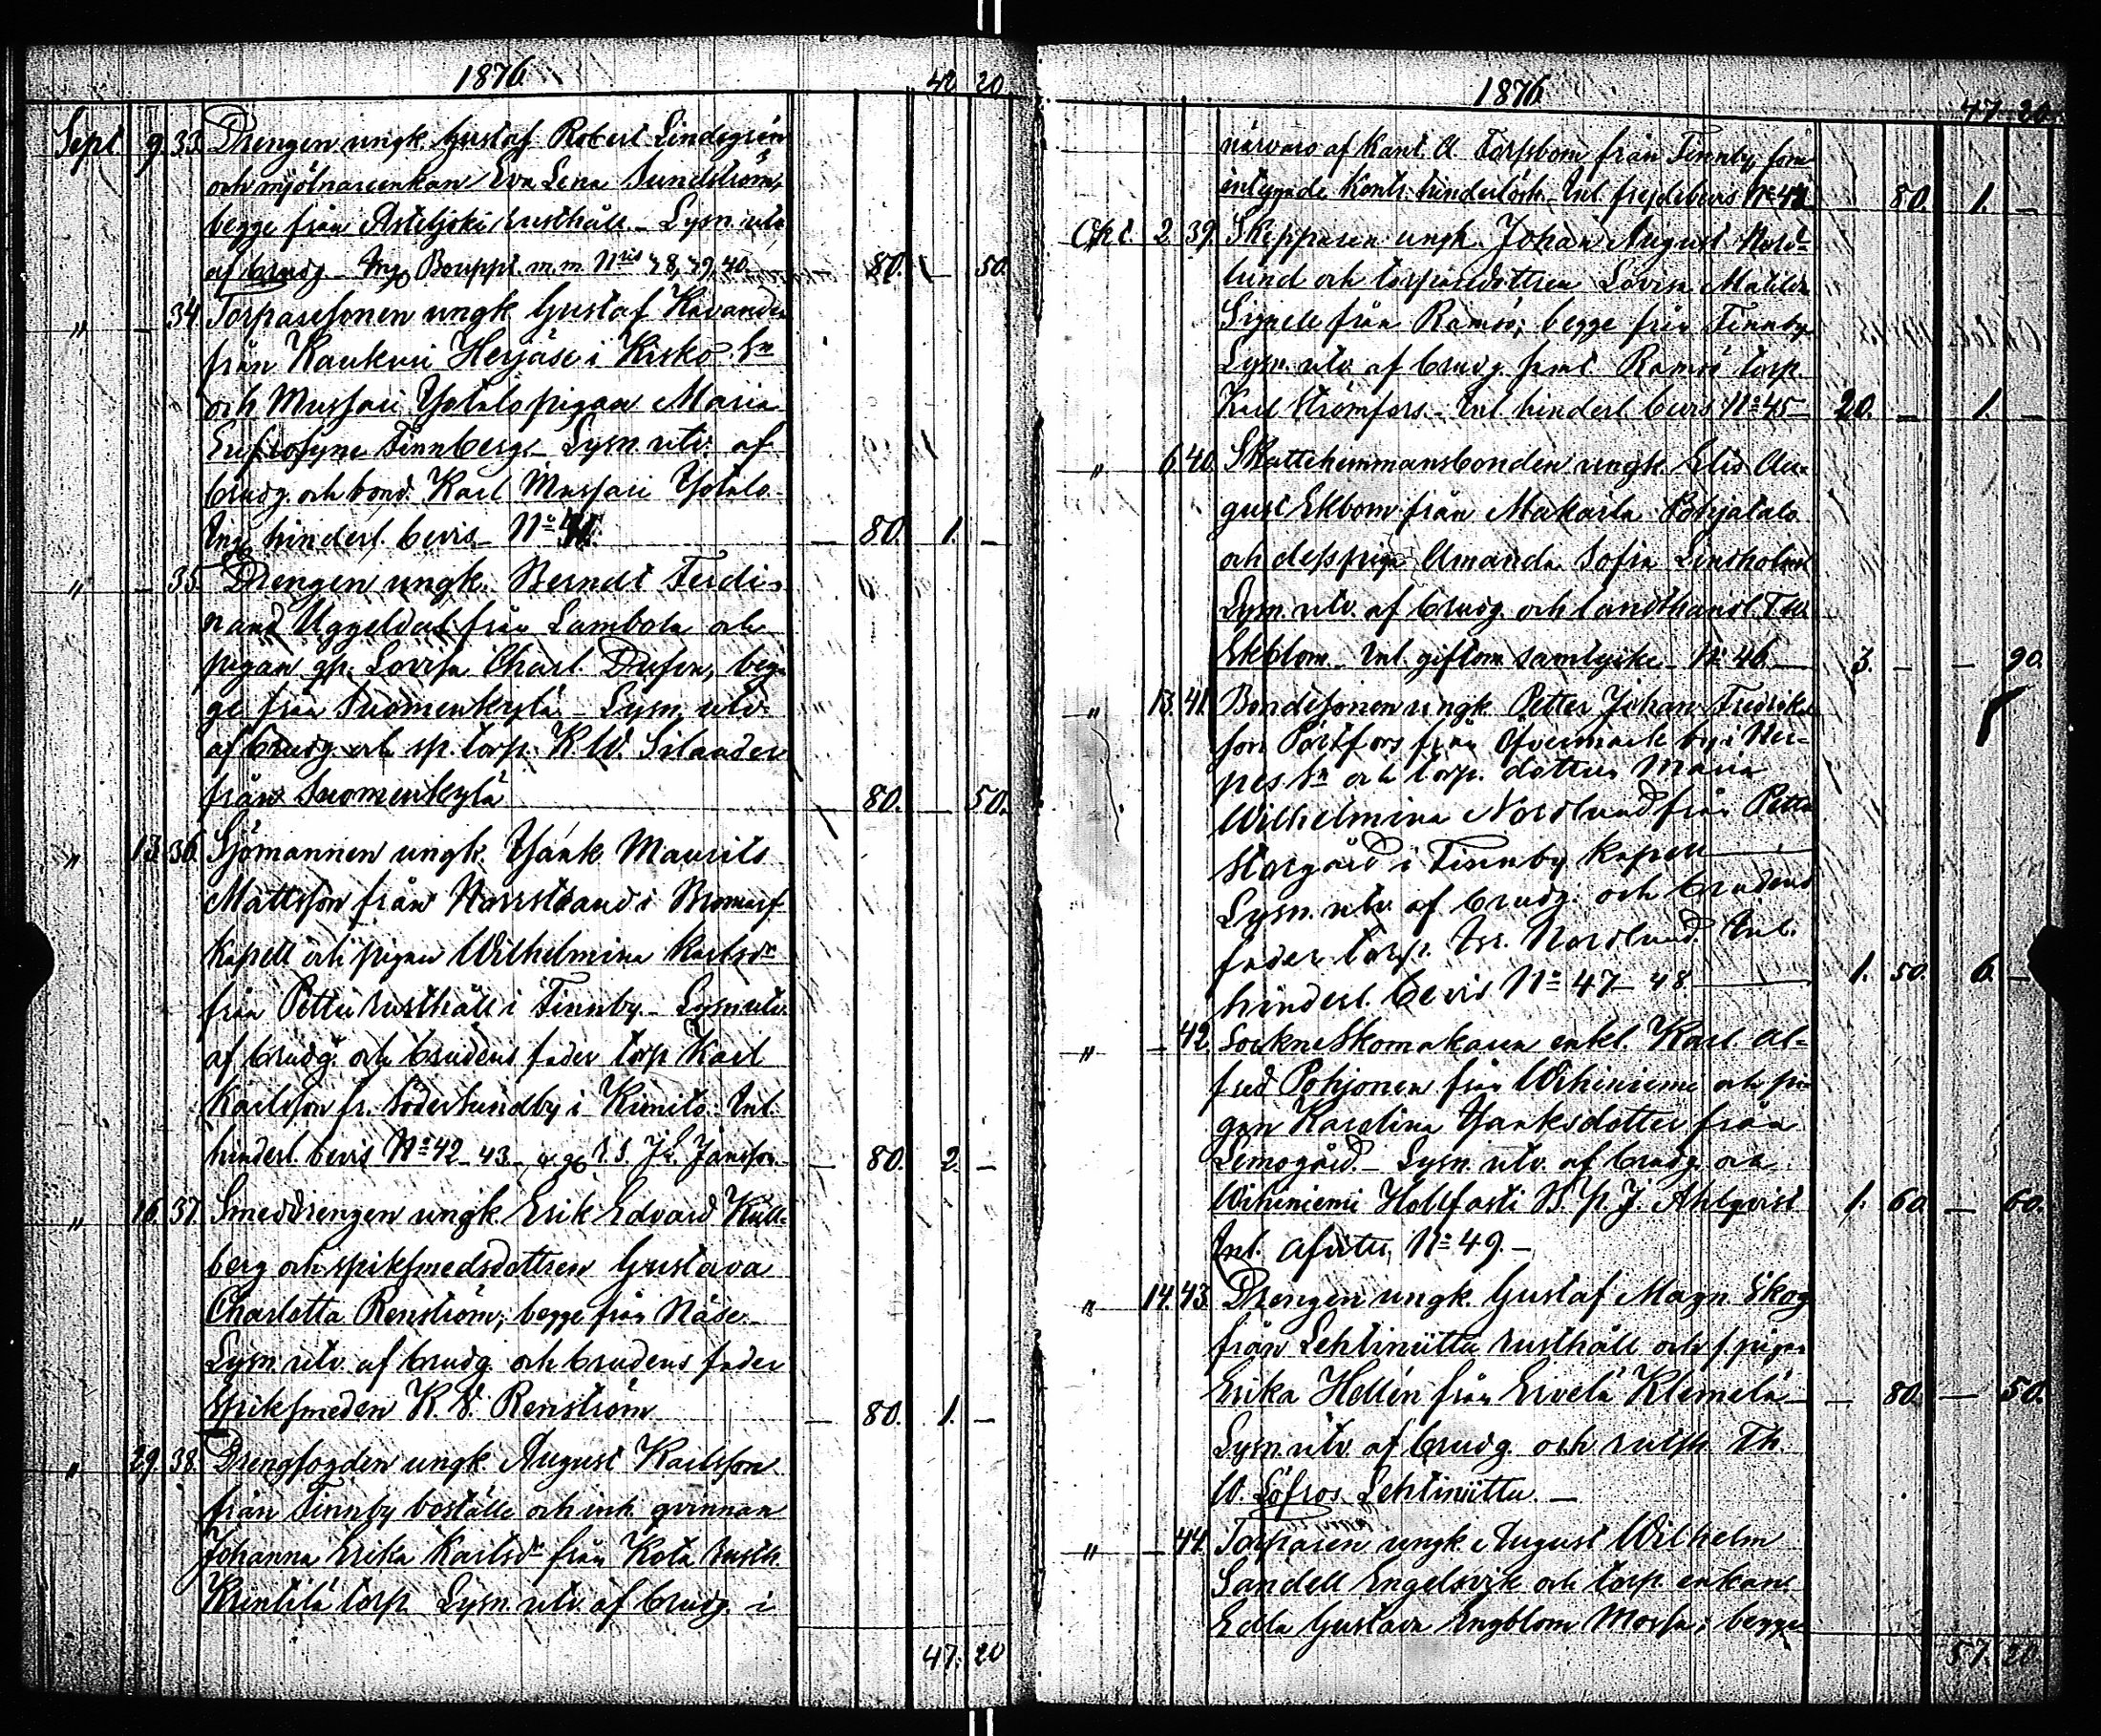 1876
40 20
Sept 9. 33. Drengen ungk. Gustaf Robert Lindegrén
och mjölnareenkan Eva Lena Sundström,
begge från Asteljoki rusthåll. Lysn. utv.
af brudg. Bouppt m.m. Nris 38, 39, 40. 80. 50.
" — 34. Torparesonen ungk. Gustaf Kavander
från Haukuri Herjäse i Kisko Sn
och Mussari Ylitalo pigan Maria
Eufrosyne Finnberg. Lysn. utv. af
brudg. och bond. Karl Mussari Ylitalo
Ing. hinderl. bevis No 41. — 80. 1. —
" — 35. Drengen ungk. Berndt Ferdi-
nand Uggeldal från Lambola och
pigan gp. Lovisa Charl. Dufva, beg-
ge från Suomenkylä — Lysn. utv.
af brudg. och sp. torp. K. W. Silander
från Suomenkylä 80. — 50.
" 13. 36. Sjömannen ungk. Isaak Maurits
Mattsson från Norrstrand i Bromarf
kapell och pigan Wilhelmina Karlsdr
från Pettu rusthåll i Finnby. Lysn. utv.
af brudg. och brudens fader torp Karl
Karlsson fr. Södersundby i Kimito. Inl.
hinderl. bevis No 42 – 43 Jansson. — 80. 2. —
" 16. 37. Smeddrengen ungk. Erik Edvard Kull-
berg och spiksmedsdottren Gustava
Charlotta Renström; begge från Näse.
Lysn. utv. af brudg. och brudens fader
Spiksmeden K. V. Renström — 80. 1. —
" 29. 38. Drengfogden ungk. August Karlsson
från Finnby boställe och inh. qvinnan
Johanna Erika Karlsdr från Kota rusth.
Krintilä torp. Lysn. utv. af brudg. i
47. 20
1876
47 20.
närvaro af Kant. A. Forsbom från Finnby, som
intygade Kontr. hinderlösh. Inl. frejdebevis No 44. 80. 1. —
Okt. 2. 39. Skepparen ungk. Johan August Nord-
lund och torparedottren Lovisa Matilda
Signell från Ramsö; begge från Finnby
Lysn. utv. af brudg. samt Ramsö torp.
Karl Strömfors. Inl. hinderl. bevis No 45 20. — 1. —
" 6. 40. Skattehemmansbonden ungk. Elis Au-
gust Ekbom från Makarla Pohjatalo
och dess piga Amanda Sofia Lindholm
Lysn. utv. af brudg. och landthandl. F. W.
Ekblom. Inl. giftom. samtycke No 46. 3. — — 90.
" 13. 41. Bondesonen ungk. Petter Johan Fredriks-
son Pörtfors från Öfvermark by i Ner-
pes Sn och torp. dottren Maria
Wilhelmina Nordlund från Pettu
Storgård i Finnby kapell
Lysn. utv. af brudg. och brudens
fader torp. Isr. Nordlund. Inl.
hinderl. bevis No 47 – 48. 1. 50. 6. —
" — 42. Sockneskomakaren enkl. Karl Al-
fred Pohjonen från Wihiniemi och pi-
gan Karolina Isaksdotter från
Lemogård. — Lysn. utv. af brudg. och
Wihiniemi Hollfasti B. P. J. Ahlqvist 1. 60 — 60.
Inl. afvittr. No 49. —
" 14. 43. Drengen ungk. Gustaf Magn. Skog
från Lehtiniittu rusthåll och f. pigan
Erika Hellén från Eivelä Klemelä — — 80. — 50.
Lysn. utv. af brudg. och rusth. Th.
W. Löfros Lehtiniittu. —
" — 44. Torparen ungk. August Wilhelm
Sandell Engelsvik och torp. enkan
Edla Gustava Engblom Morsa; begge
57. 20.